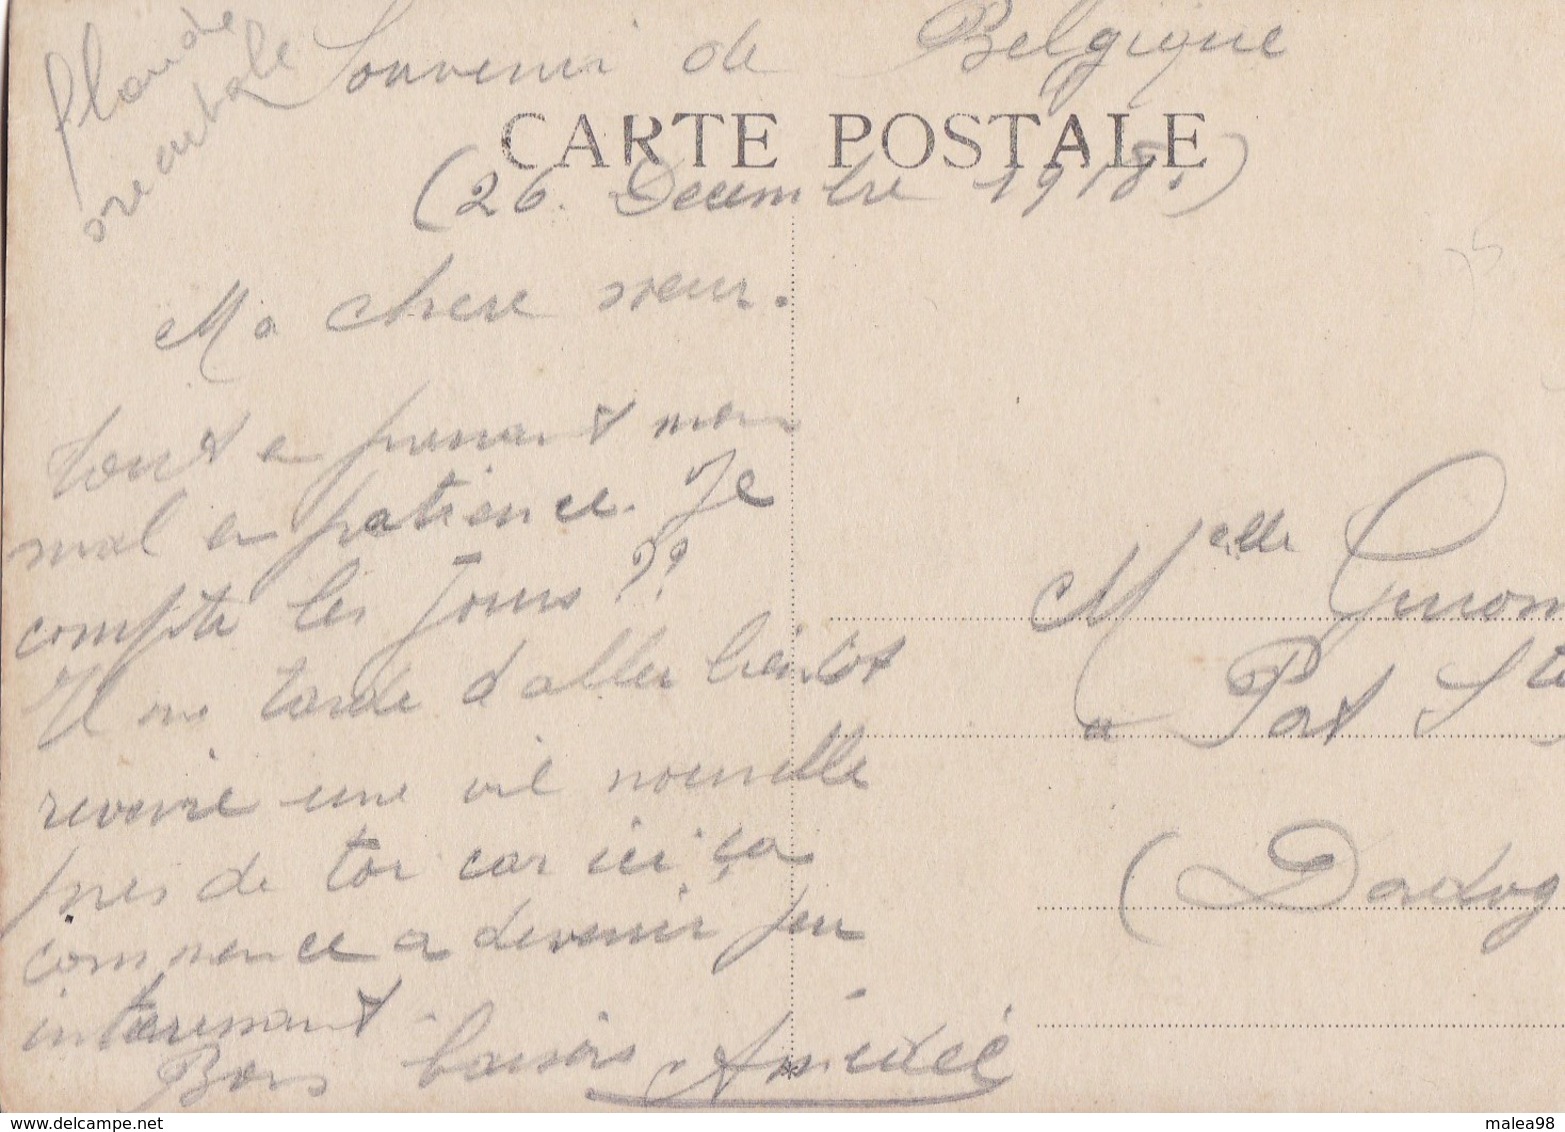 Souvenir de Belgique
CARTE POSTALE
(26. Decembre 1918.)
Ma chere sœur.
tout en prenant mon
mal en patience. Je
compte les jours ??
Il me tarde d'aller bientot
revoire une vie nouvelle
pres de toi car ici ça
commence a devenir peu
interessant.
Bons baisers Amédée
Flandre
orientale
Melle
a Port Ste
(Dordog
www.delcampe.net
malea98